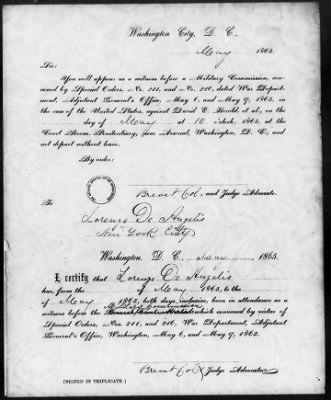 Washington City, D. C.,
May 1865.
Sir:
You will appear as a witness before a Military Commission, con-
vened by Special Orders, Nos. 211, and 216, dated War Depart-
ment, Adjutant General's Office, May 6, and May 9, 1865, in
the case of the United States, against David E. Herold et al., on the
day of May at 10 o'clock, 1865, at the
Court Room, Penitentiary, near Arsenal, Washington, D. C., and
not depart without leave.
By order:
Brevet Col. and Judge Advocate.
To
Lorenzo De Angelis
New York City
Washington, D. C., May 1865.
I certify that Lorenzo De Angelis
has, from the of May 1865, to the
of May 1865, both days, inclusive, been in attendance as a
witness before the Military Commission which convened by virtue of
Special Orders, Nos. 211, and 216, War Department, Adjutant
General's Office, Washington, May 6, and May 9, 1865.
Brevet Col & Judge Advocate.
[SIGNED IN TRIPLICATE.]